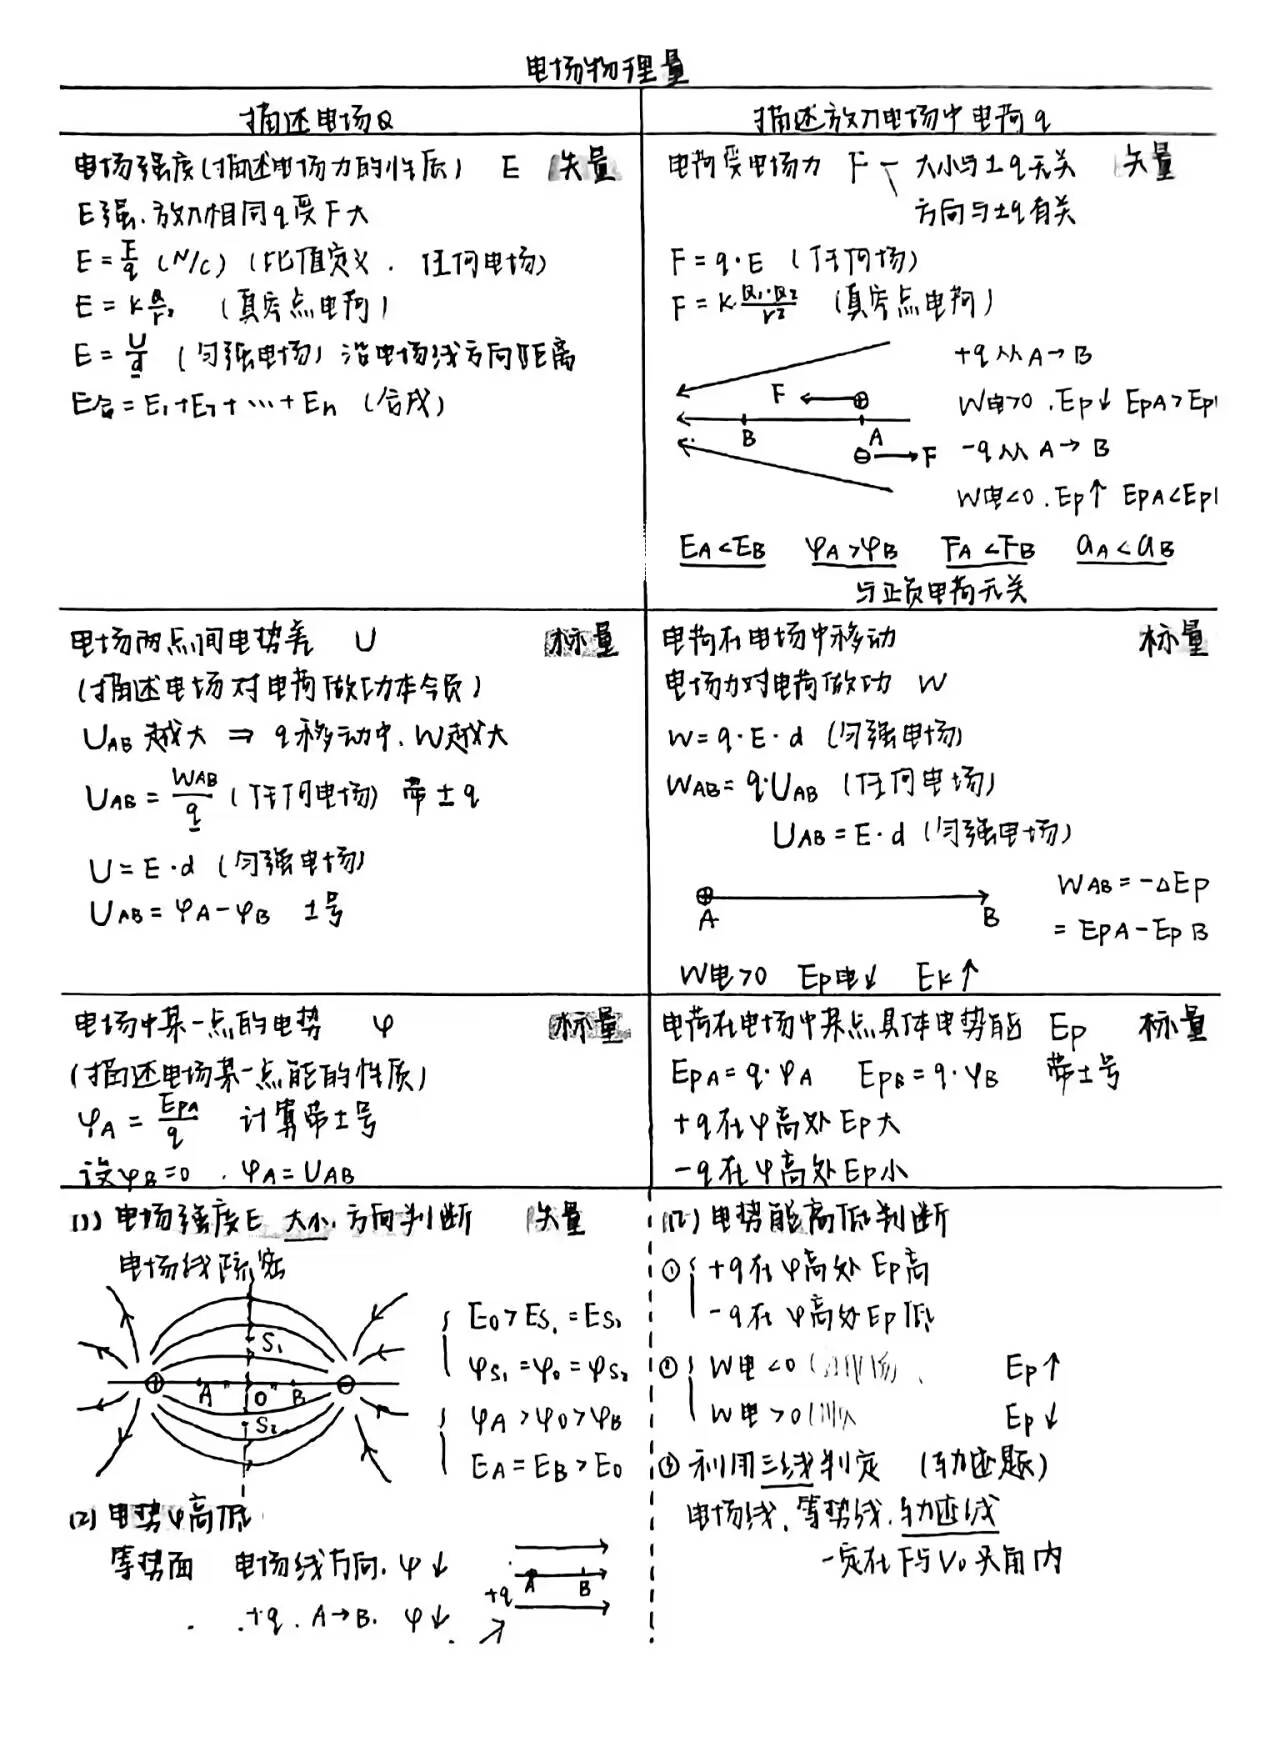 电场物理量
描述电场Q
电场强度(描述电场力的性质) E 矢量
E强,放入相同q受F大
E = F/q (N/C) (比值定义, 任何电场)
E = K Q/r² (真空点电荷)
E = U/d (匀强电场) 沿电场线方向距离
E合 = E₁+E₂+…+En (合成)
描述放入电场中电荷q
电荷受电场力 F 大小与±q无关 矢量
方向与±q有关
F = q·E (任何场)
F = K Q₁·Q₂/r² (真空点电荷)
+q从A→B
F ⊕
W电>0,Ep↓ EpA>Ep
B A
⊖ F
-q从A→B
W电<0,Ep↑ EpA<Ep
EA<EB φA>φB FA<FB aA<aB
与正负电荷无关
电场两点间电势差 U 标量
(描述电场对电荷做功本领)
UAB越大 ⇒ q移动中,W越大
UAB = WAB/q (任何电场) 带±q
U = E·d (匀强电场)
UAB = φA-φB ±号
电荷在电场中移动 标量
电场力对电荷做功 W
W = q·E·d (匀强电场)
WAB = q·UAB (任何电场)
UAB = E·d (匀强电场)
⊕ WAB = -△Ep
A B = EpA - EpB
W电>0 Ep电↓ Ek↑
电场中某一点的电势 φ 标量
(描述电场某一点能的性质)
φA = EpA/q 计算带±号
设φB=0,φA=UAB
电荷在电场中某点具体电势能 Ep 标量
EpA = q·φA EpB = q·φB 带±号
+q在φ高处Ep大
-q在φ高处Ep小
(1) 电场强度E 大小,方向判断 矢量
电场线疏密
S₁
⊕ A O B ⊖
S₂
E₀>ES₁=ES₂
φS₁=φ₀=φS₂
φA>φ₀>φB
EA=EB>E₀
(2) 电势φ高低
等势面 电场线方向,φ↓
+q,A→B,φ↓
+q A B
电势能高低判断
① +q在φ高处Ep高
-q在φ高处Ep低
② W电<0 Ep↑
W电>0 Ep↓
③ 利用三线判定 (轨迹题)
电场线、等势线、轨迹线
一定在F与V₀夹角内